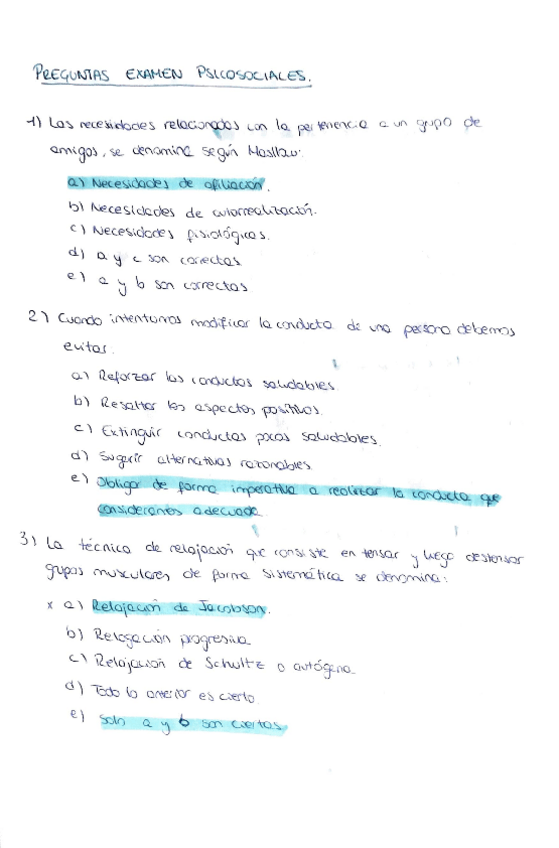 PREGUNTAS EXAMEN PSICOSOCIALES.
1) Las necesidades relacionadas con la pertenencia a un grupo de
amigos, se denomina según Masllow:
a) Necesidades de afiliación.
b) Necesidades de autorrealización.
c) Necesidades fisiológicas.
d) a y c son correctas
e) a y b son correctas
2) Cuando intentamos modificar la conducta de una persona debemos
evitar.
a) Reforzar las conductas saludables.
b) Resaltar los aspectos positivos.
c) Extinguir conductas pocas saludables.
d) Sugerir alternativas razonables
e) Obligar de forma imperativa a realizar la conducta que
consideramos adecuada.
3) La técnica de relajación que consiste en tensar y luego destensar
grupos musculares de forma sistemática se denomina:
x a) Relajación de Jacobson.
b) Relajación progresiva
c) Relajación de Schultz o autógena
d) Todo lo anterior es cierto
e) Solo a y b son ciertas.